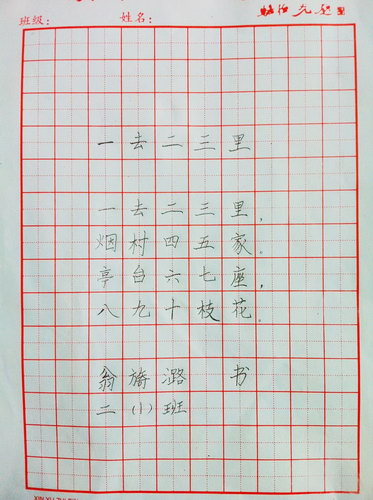 班级： 姓名：
一去二三里
一去二三里，
烟村四五家。
亭台六七座，
八九十枝花。
翁旖潞 书
二（1）班